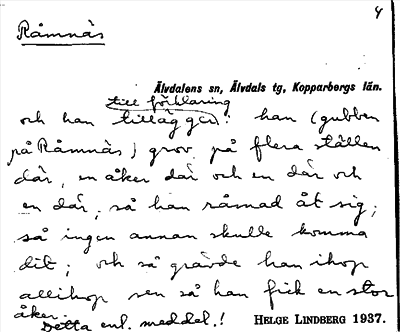 4
Råmnäs
Älvdalens sn, Älvdals tg, Kopparbergs län.
till förklaring
och han tillägger: han (gubben
på Råmnäs) grov på flera ställen
där, en åker där och en där och
en där, så han råmad åt sig;
så ingen annan skulle komma
dit; och så grävde han ihop
allihop sen så han fick en stor
åker.
Detta enl. meddel.!
HELGE LINDBERG 1937.